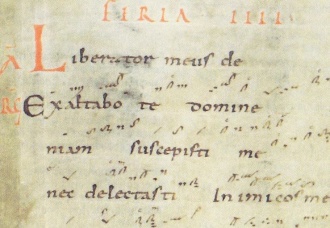 FIRIA IIII
Ā Liberator meus de
R Exaltabo te domine
niam suscepisti me
nec delectasti Inimicos me